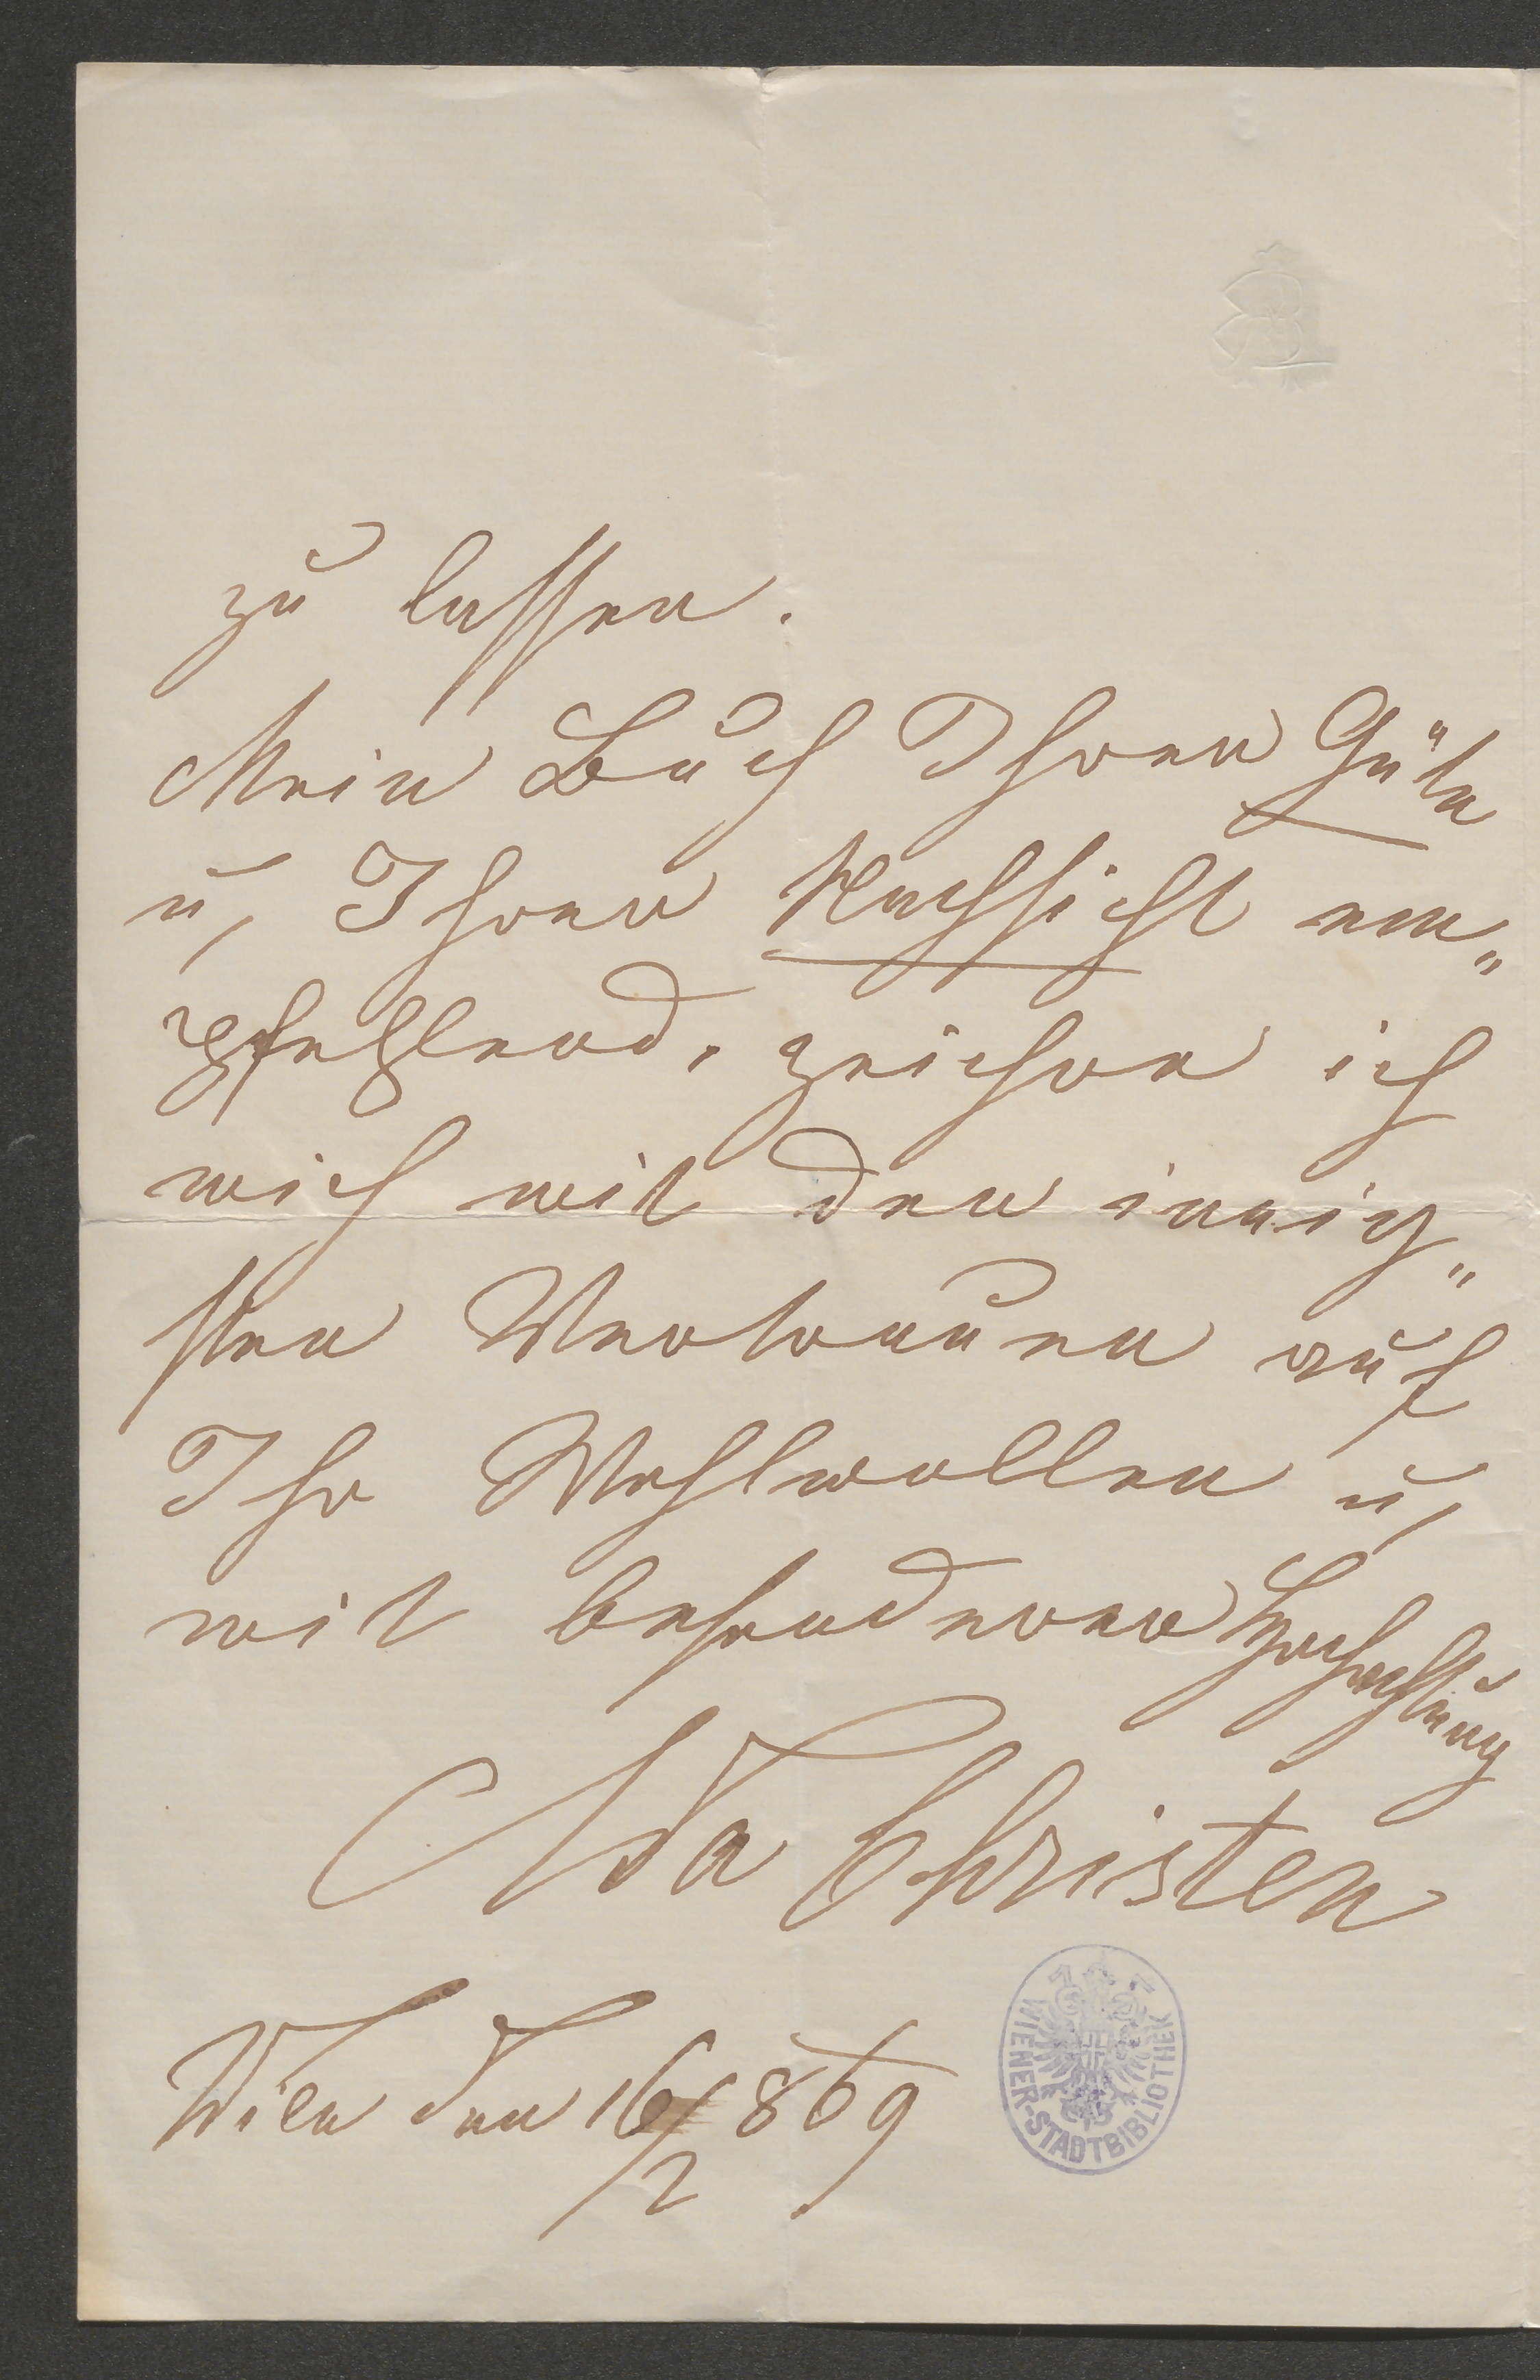 zu lassen.
Mein Buch Ihrer Güte
u, Ihrer Nachsicht em„
pfehlend, zeichne ich
mich mit den innig„
sten Vertrauen auf
Ihr Wohlwollen u,
mit besonderer Hochachtung
Ada Christen
Wien den 16/2 869
WIENER-STADTBIBLIOTHEK